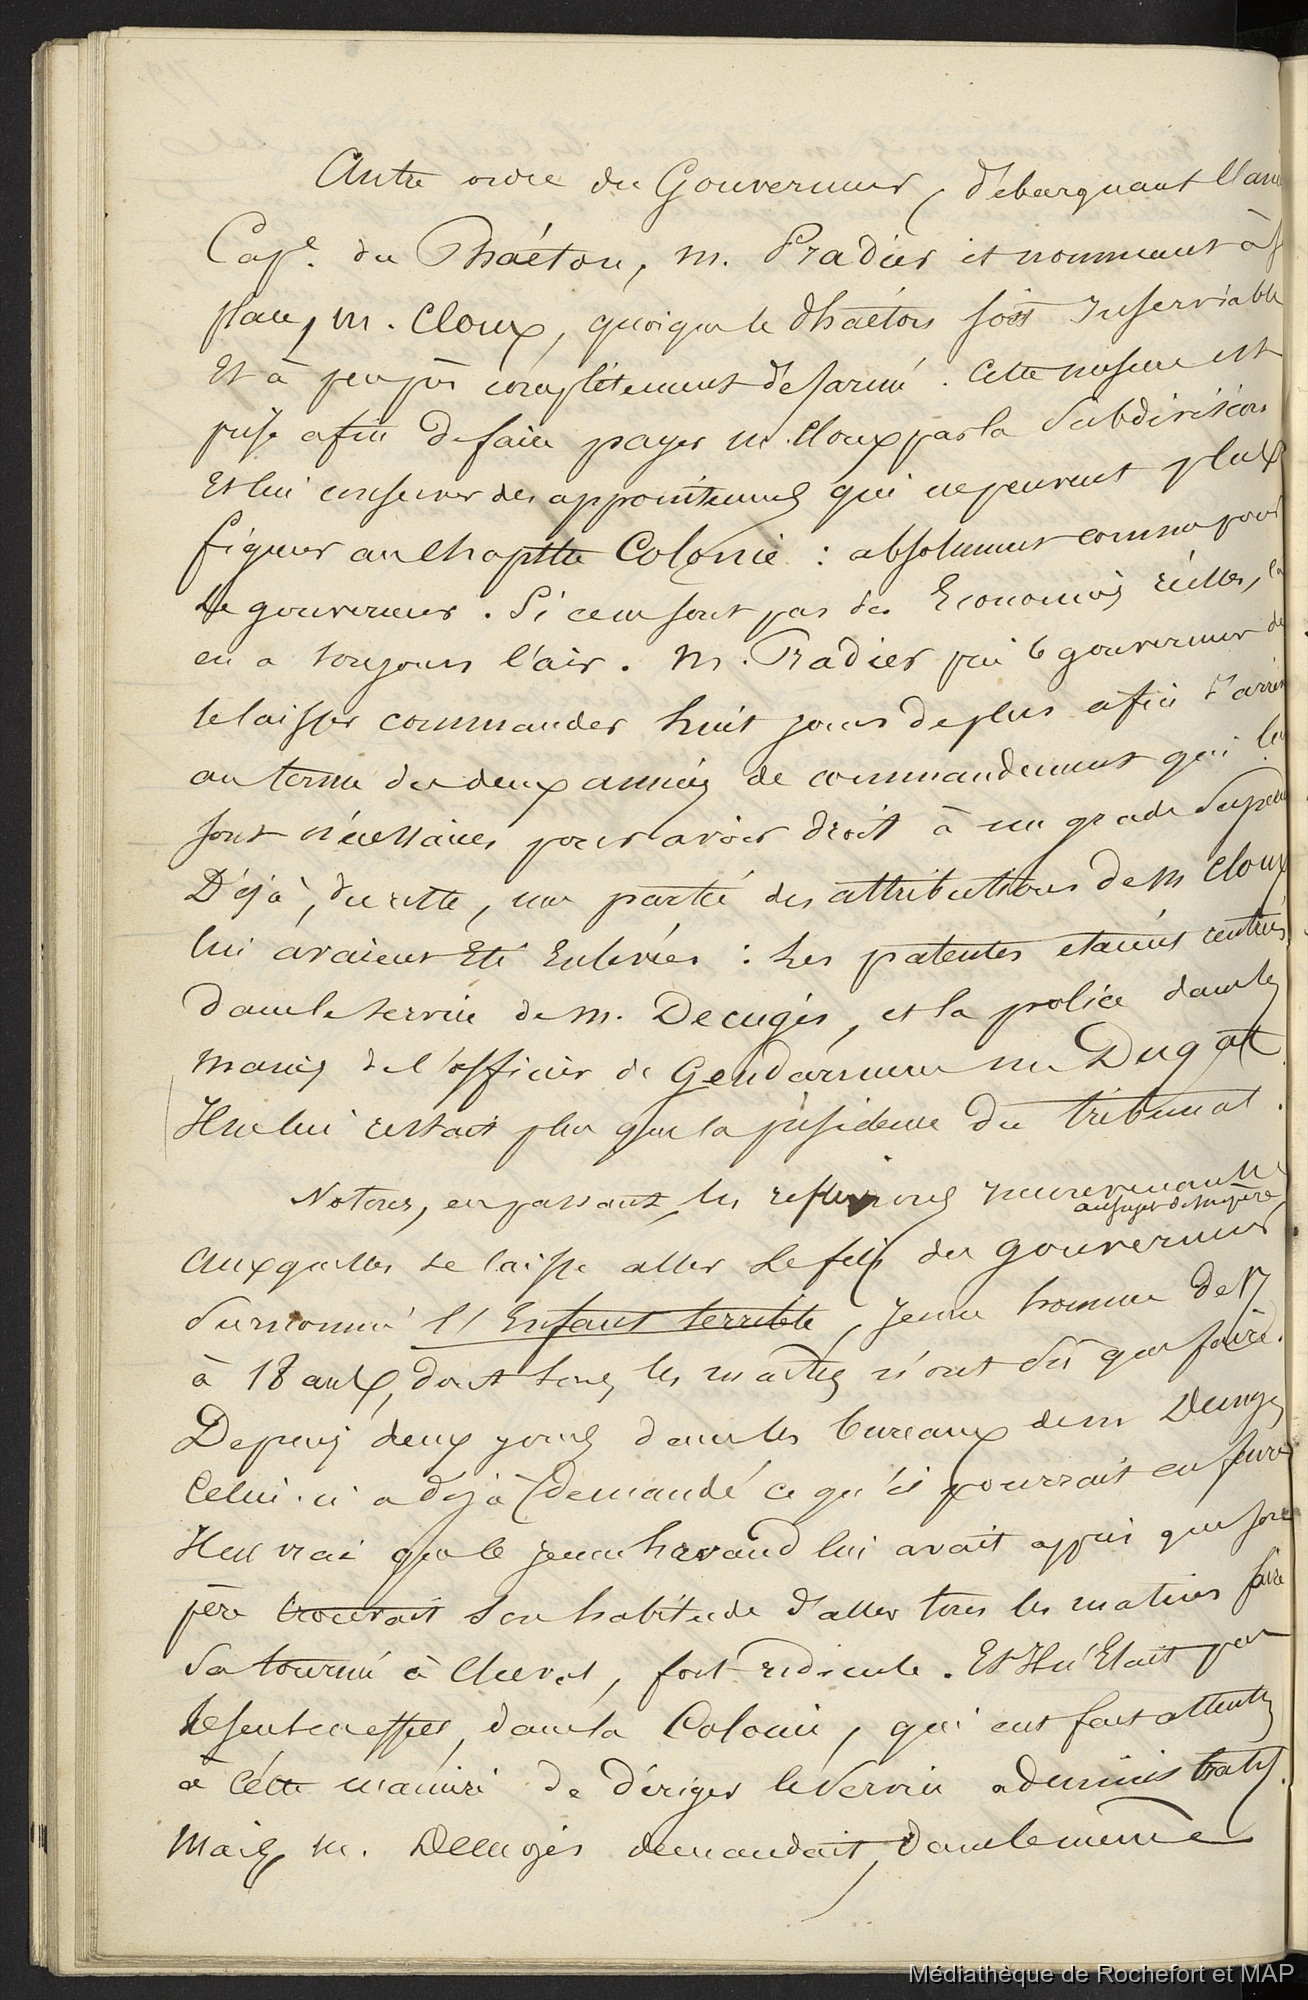 Autre ordre du Gouverneur, débarquant l'an
Cape. du Phaéton, M. Pradier et nommant à s
place, M. Cloux, quoique le Phaéton soit Inserviable
Et à peu près complètement désarmé. Cette mesure est
prise afin de faire payer M. Cloux par la Subdivision
Et lui conserver des appointements qui ne peuvent plus
figurer au Chapitre Colonie : absolument comme pour
le gouverneur. Si ce ne sont pas des Economies réelles, ça
en a toujours l'air. M. Pradier prie le gouverneur de
le laisser commander huit jours de plus afin d'arriv
au terme des deux années de commandement qui lui
sont nécessaires pour avoir droit à un grade Supéri
Déjà, du reste, une partie des attributions de M Cloux
lui avaient Eté Enlevées : Les patentes étaient rentrées
dans le service de M. Decugis, et la police dans les
mains de l'officier de Gendarmerie M Dugat.
Il ne lui restait plus que la présidence du tribunal.
Notons, en passant, les reflexions
au sujet de son père
auxquelles se laisse aller le fils du gouverneur
Surnommé l'Enfant terrible, Jeune homme de 17
à 18 ans, dont tous les maîtres n'ont su que faire.
Depuis deux jours dans les bureaux de M Decugis
Celui-ci a déjà demandé ce qu'il pourrait en faire
Il est vrai que le jeune lui avait appris que son
père trouvait son habitude d'aller tous les matins faire
Sa tournée à Cheval, fort ridicule. Et Il n'Etait pas
le seul en effet, dans la Colonie, qui eut fait attention
à cette manière de diriger le Service administratif.
Mais, M. Decugis demandait, dans le même